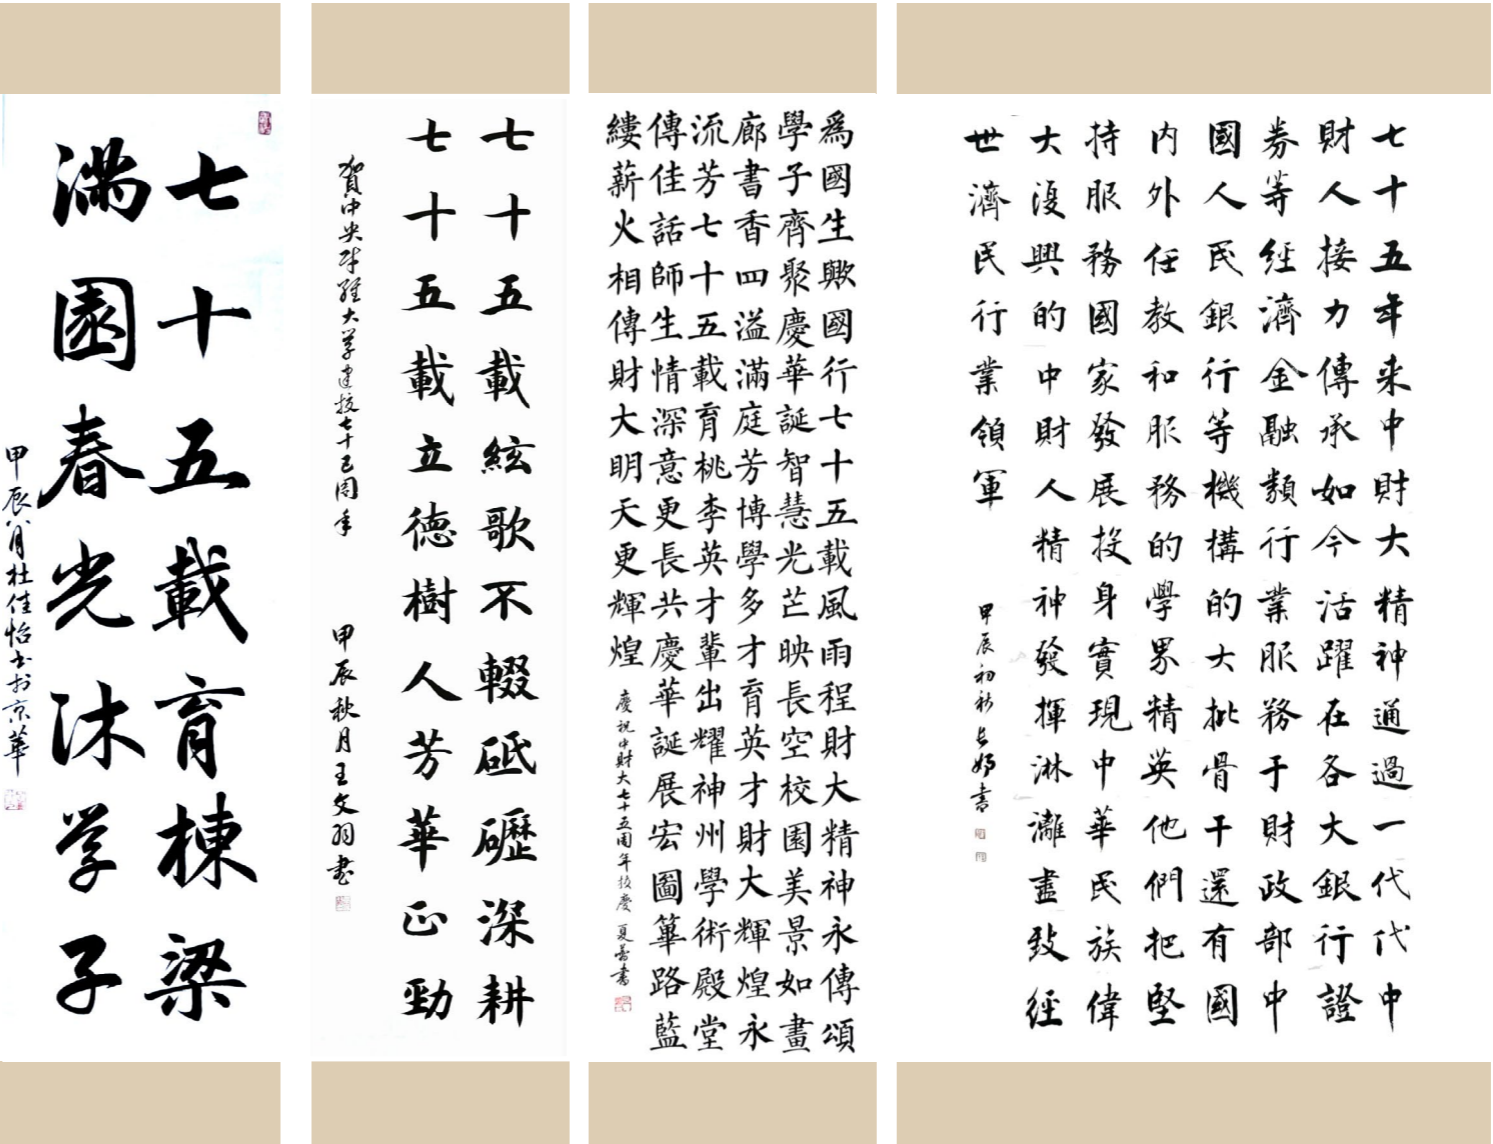 七十五載育棟梁
满園春光沐学子
甲辰八月杜佳怡书於京華
七十五載絃歌不輟砥礪深耕
七十五載立德樹人芳華正勁
賀中央财經大学建校七十五周年
甲辰秋月王文羽書
爲國生歟國行七十五載風雨程財大精神永傳頌
學子齊聚慶華誕智慧光芒映長空校園美景如畫
廊書香四溢滿庭芳博學多才育英才財大輝煌永
流芳七十五載育桃李英才輩出耀神州學術殿堂
傳佳話師生情深意更長共慶華誕展宏圖篳路藍
縷薪火相傳財大明天更輝煌
慶祝中財大七十五周年校慶 夏蕾書
七十五年来中財大精神通過一代代中
財人接力傳承如今活躍在各大銀行證
券等經濟金融類行業服務于財政部中
國人民銀行等機構的大批骨干還有國
内外任教和服務的學界精英他們把堅
持服務國家發展投身實現中華民族偉
大復興的中財人精神發揮淋灕盡致經
世濟民行業領軍
甲辰初秋 書